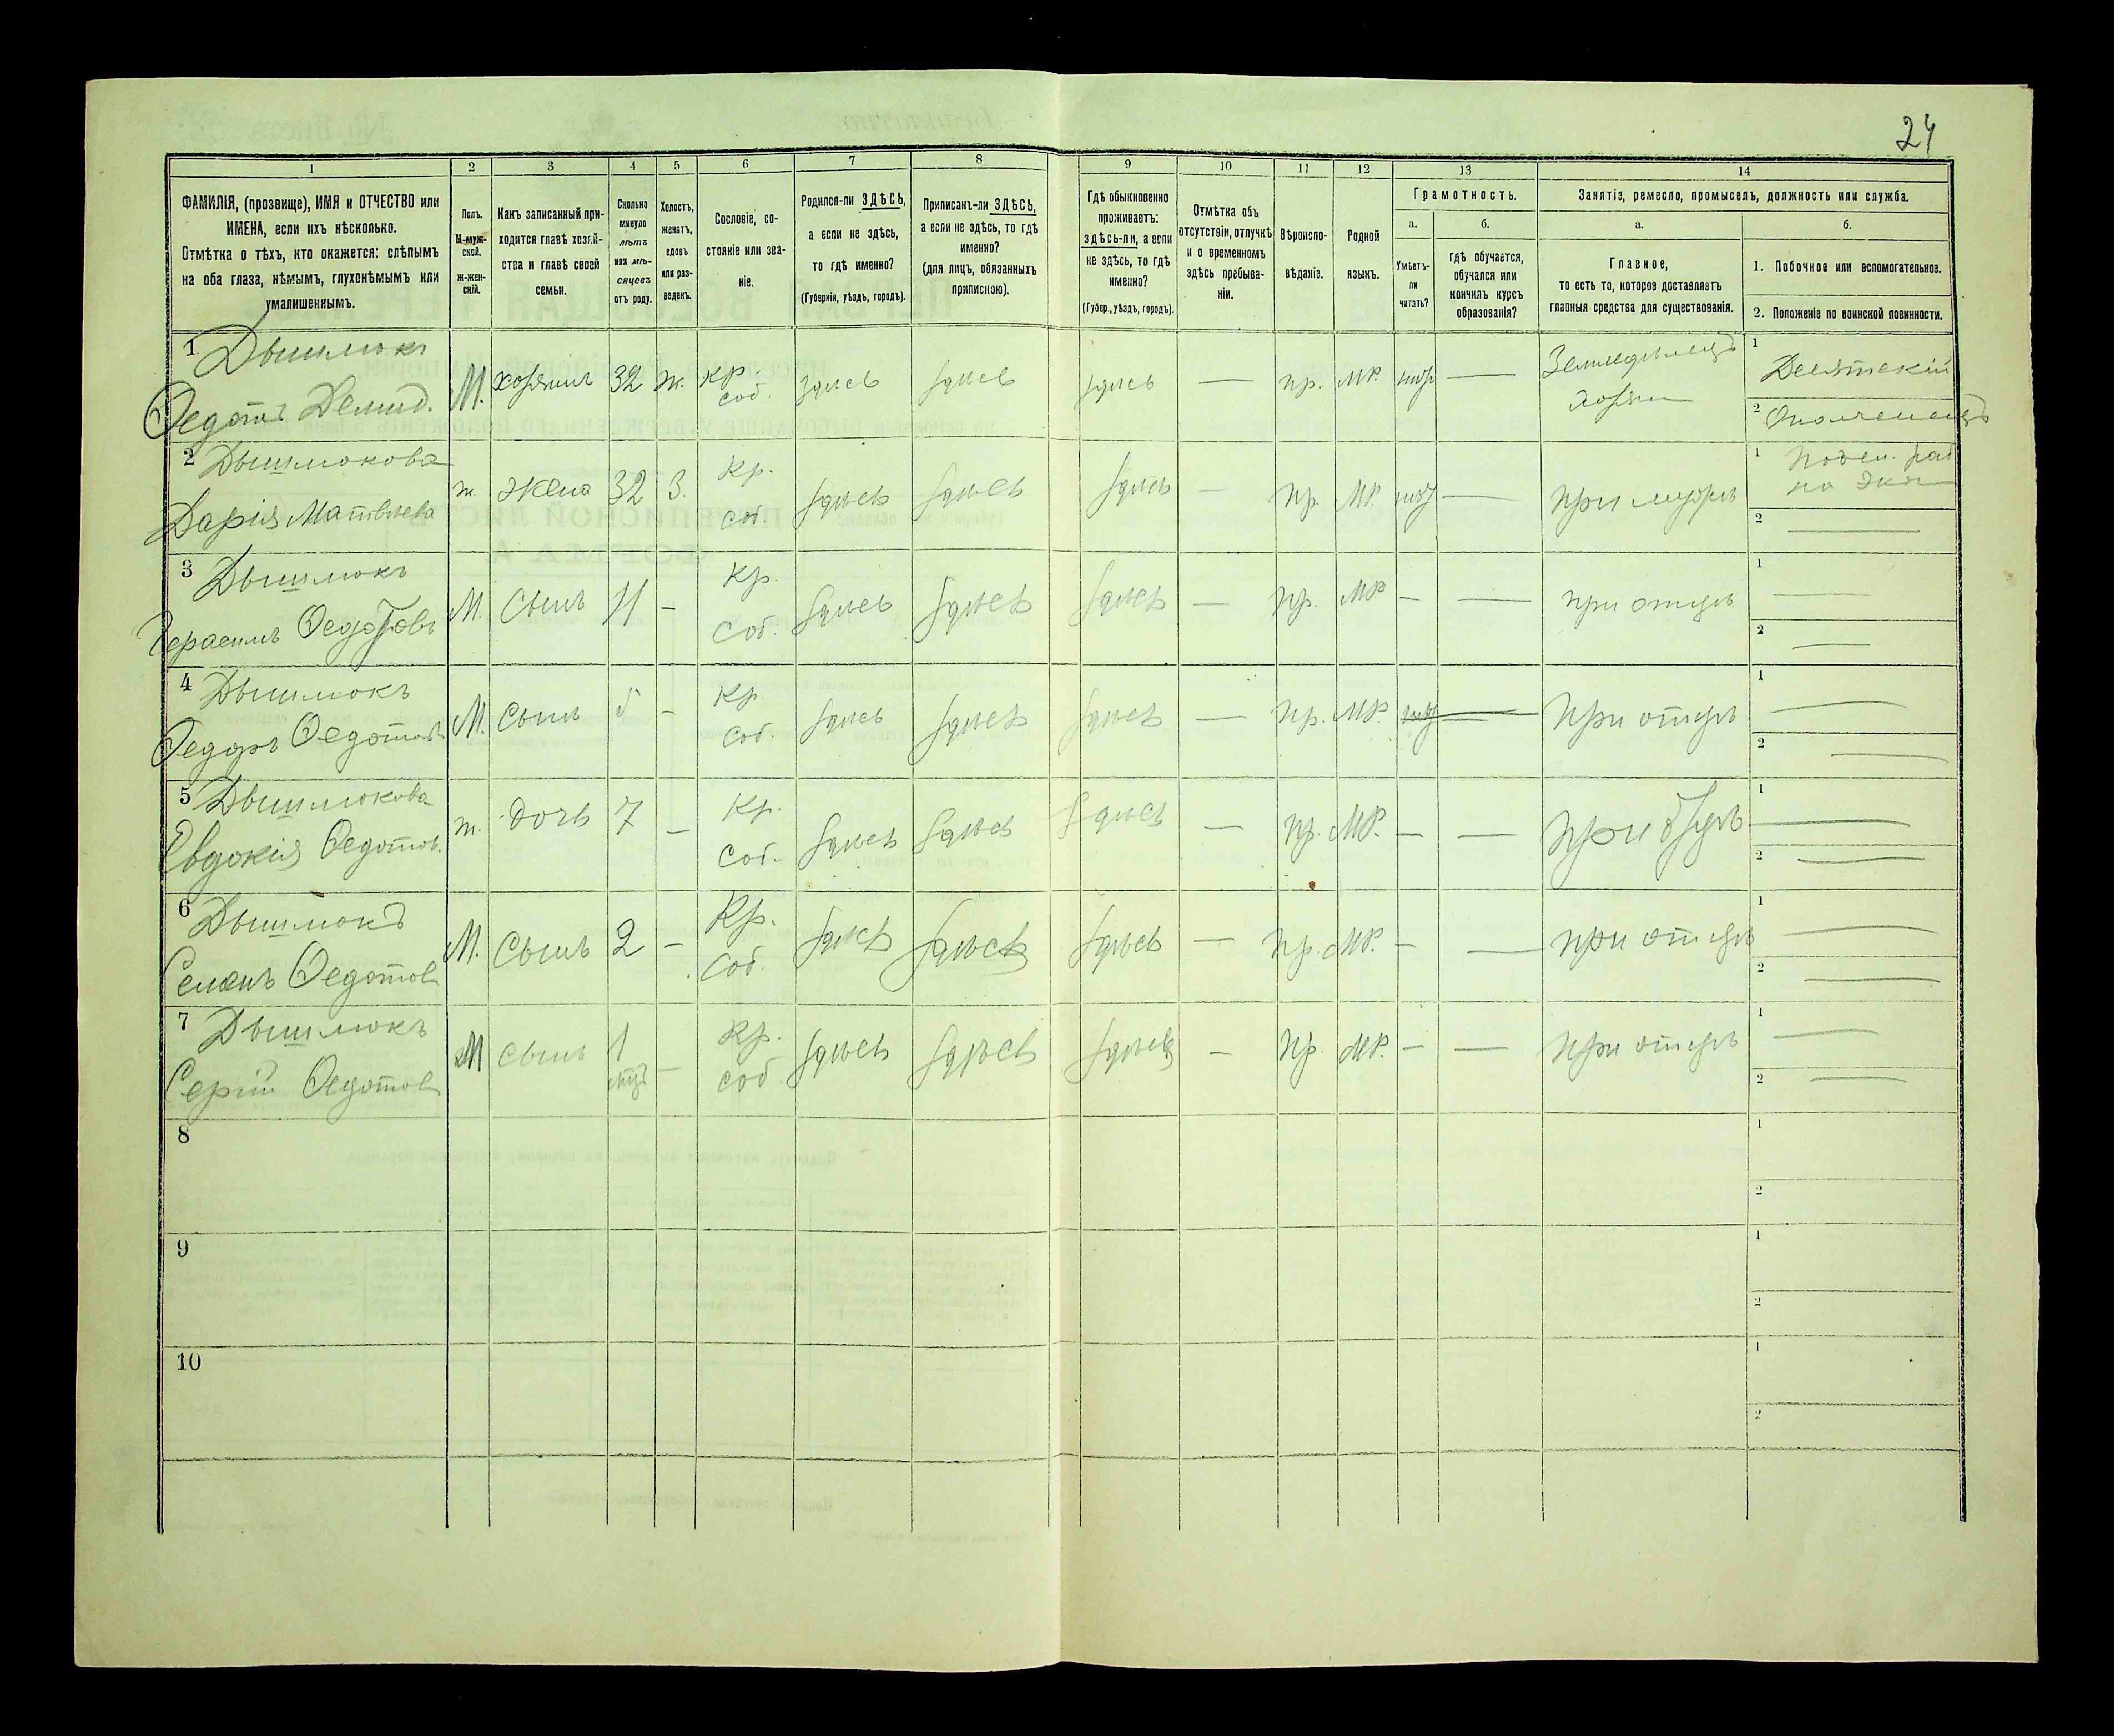 24
1 2 3 4 5 6 7 8 9 10 11 12 13 14
ФАМИЛІЯ, (прозвище), ИМЯ и ОТЧЕСТВО или
ИМЕНА, если ихъ нѣсколько.
Отмѣтка о тѣхъ, кто окажется: слѣпымъ
на оба глаза, нѣмымъ, глухонѣмымъ или
умалишеннымъ.
Полъ.
М-муж-
ской.
ж-жен-
скій.
Какъ записанный при-
ходится главѣ хозяй-
ства и главѣ своей
семьи.
Сколько
минуло
лѣтъ
или мѣ-
сяцевъ
отъ роду.
Холостъ,
женатъ,
вдовъ
или раз-
веденъ.
Сословіе, со-
стояніе или зва-
ніе.
Родился-ли ЗДѢСЬ,
а если не здѣсь,
то гдѣ именно?
(Губернія, уѣздъ, городъ).
Приписанъ-ли ЗДѢСЬ,
а если не здѣсь, то гдѣ
именно?
(для лицъ, обязанныхъ
припискою).
Гдѣ обыкновенно
проживаетъ:
здѣсь-ли, а если
не здѣсь, то гдѣ
именно?
(Губер., уѣздъ, городъ).
Отмѣтка объ
отсутствіи, отлучкѣ
и о временномъ
здѣсь пребыва-
ніи.
Вѣроиспо-
вѣданіе.
Родной
языкъ.
Грамотность.
а.
Умѣетъ-
ли
читать?
б.
гдѣ обучается,
обучался или
кончилъ курсъ
образованія?
Занятіе, ремесло, промыселъ, должность или служба.
а.
Главное,
то есть то, которое доставляетъ
главныя средства для существованія.
б.
1. Побочное или вспомогательное.
2. Положеніе по воинской повинности.
1 Дышлюкъ
Ѳедотъ Демид. М. хозяинъ 32 ж. кр. соб. здѣсь здѣсь здѣсь — пр. МР. — Земледѣлецъ хозяин
1 Десятскій
2 Ополченецъ
2 Дышлюкова
Дарія Матвѣева ж. жена 32 З. Кр. соб. здѣсь здѣсь здѣсь — пр. МР. — при мужѣ
1 Поден. раб
на эко
2 —
3 Дышлюкъ
Герасимъ Ѳедотовъ М. Сынъ 11 — Кр. Соб. здѣсь здѣсь здѣсь — пр. МР — — при отцѣ
1 —
2 —
4 Дышлюкъ
Ѳедоръ Ѳедотовъ М. Сынъ 5 — Кр Соб. здѣсь здѣсь здѣсь — пр. МР. — При отцѣ
1 —
2 —
5 Дышлюкова
Евдокія Ѳедотов. ж. дочь 7 — Кр. Соб. здѣсь здѣсь здѣсь — пр. МР. — — при отцѣ
1 —
2 —
6 Дышлюкъ
Семенъ Ѳедотов М. Сынъ 2 — Кр. Соб. здѣсь здѣсь здѣсь — пр. МР. — — при отцѣ
1 —
2 —
7 Дышлюкъ
Сергій Ѳедотов М сынъ 1 мѣс — Кр. соб здѣсь здѣсь здѣсь — пр. МР. — — При отцѣ
1 —
2 —
8
1
2
9
1
2
10
1
2